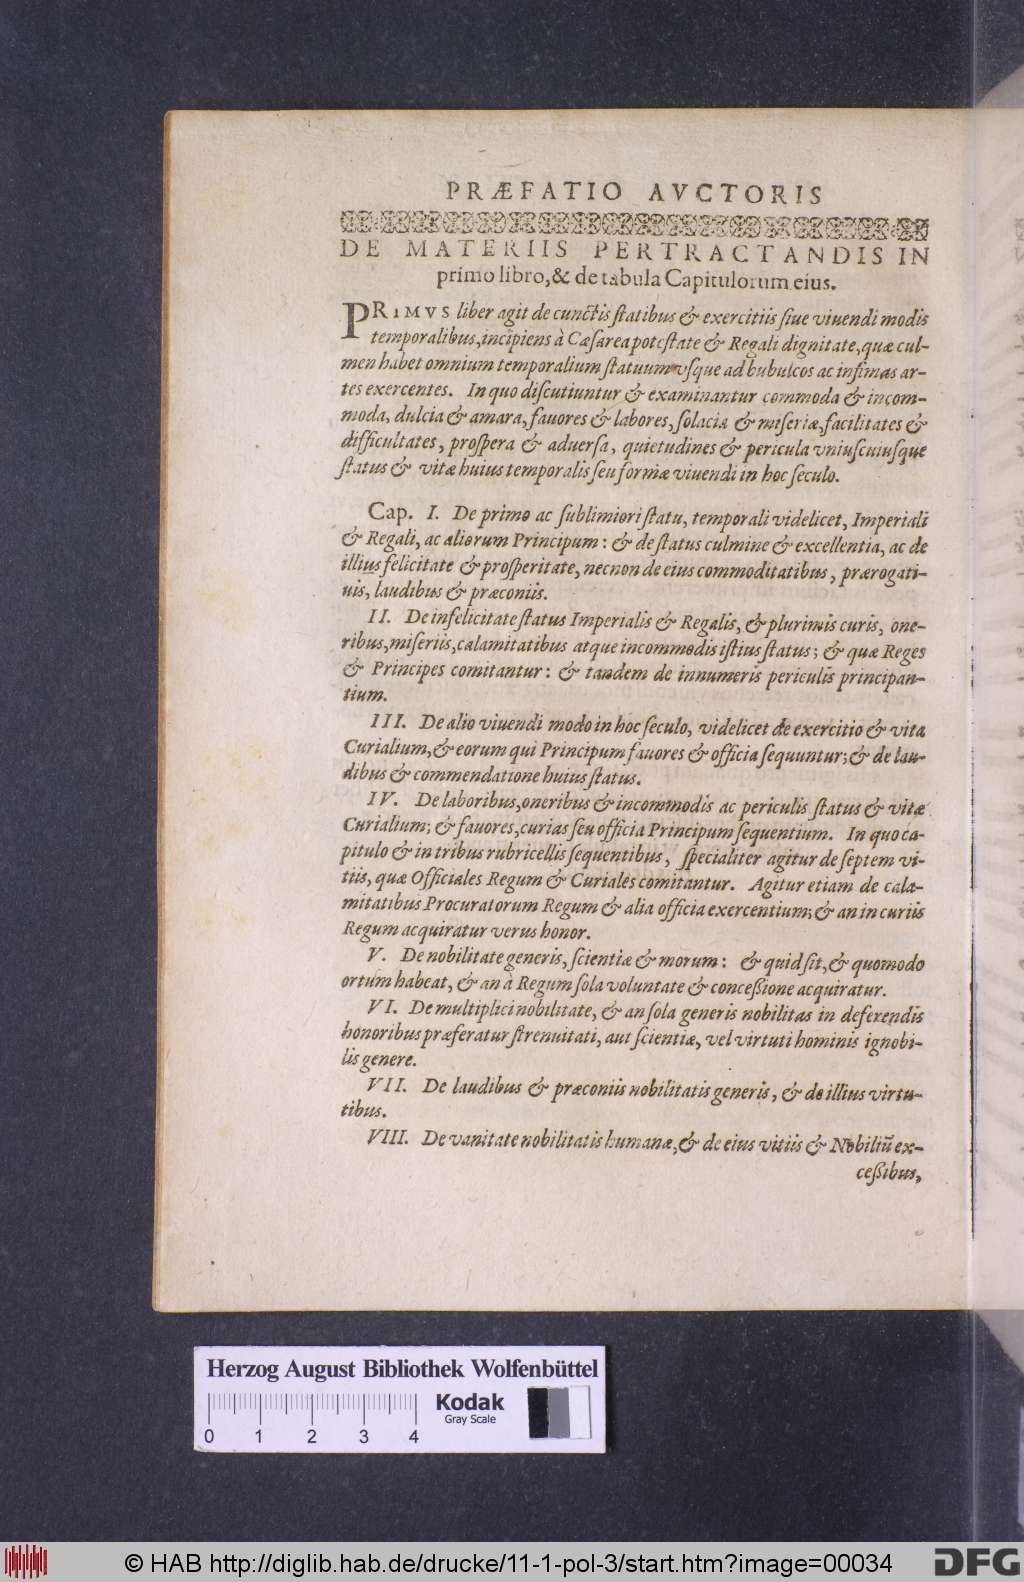 PRÆFATIO AVCTORIS
DE MATERIIS PERTRACTANDIS IN
primo libro, & de tabula Capitulorum eius.
PRIMVS liber agit de cunctis statibus & exercitiis siue viuendi modis
temporalibus, incipiens à Cæsarea potestate & Regali dignitate, quæ cul-
men habet omnium temporalium statuum vsque ad bubulcos ac infimas ar-
tes exercentes. In quo discutiuntur & examinantur commoda & incom-
moda, dulcia & amara, fauores & labores, solacia & miseriæ, facilitates &
difficultates, prospera & aduersa, quietudines & pericula vniuscuiusque
status & vitæ huius temporalis seu formæ viuendi in hoc seculo.
Cap. I. De primo ac sublimiori statu, temporali videlicet, Imperiali
& Regali, ac aliorum Principum: & de status culmine & excellentia, ac de
illius felicitate & prosperitate, necnon de eius commoditatibus, prærogati-
uis, laudibus & præconiis.
II. De infelicitate status Imperialis & Regalis, & plurimis curis, one-
ribus, miseriis, calamitatibus atque incommodis istius status; & quæ Reges
& Principes comitantur: & tandem de innumeris periculis principan-
tium.
III. De alio viuendi modo in hoc seculo, videlicet de exercitio & vita
Curialium, & eorum qui Principum fauores & officia sequuntur; & de lau-
dibus & commendatione huius status.
IV. De laboribus, oneribus & incommodis ac periculis status & vitæ
Curialium; & fauores, curias seu officia Principum sequentium. In quo ca-
pitulo & in tribus rubricellis sequentibus, specialiter agitur de septem vi-
tiis, quæ Officiales Regum & Curiales comitantur. Agitur etiam de cala-
mitatibus Procuratorum Regum & alia officia exercentium; & an in curiis
Regum acquiratur verus honor.
V. De nobilitate generis, scientiæ & morum: & quid sit, & quomodo
ortum habeat, & an à Regum sola voluntate & concessione acquiratur.
VI. De multiplici nobilitate, & an sola generis nobilitas in deferendis
honoribus præferatur strenuitati, aut scientiæ, vel virtuti hominis ignobi-
lis genere.
VII. De laudibus & præconiis nobilitatis generis, & de illius virtu-
tibus.
VIII. De vanitate nobilitatis humanæ, & de eius vitiis & Nobiliũ ex-
cessibus,
Herzog August Bibliothek Wolfenbüttel
Kodak
Gray Scale
0 1 2 3 4
© HAB http://diglib.hab.de/drucke/11-1-pol-3/start.htm?image=00034
DFG